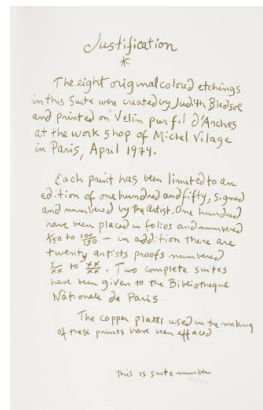 Justification
*
The eight original colored etchings
in this suite were created by Judith Bledsoe
and printed on Velin pur fil d'Arches
at the work shop of Michel Vilage
in Paris, April 1974.
Each print has been limited to an
edition of one hundred and fifty, signed
and numbered by the artist. One hundred
have been placed in folios and numbered
1/150 to 100/150 — in addition there are
twenty artists proofs numbered
I/XX to XX/XX. Two complete suites
have been given to the Bibliotheque
Nationale de Paris.
The copper plates used in the making
of these prints have been effaced
This is suite number